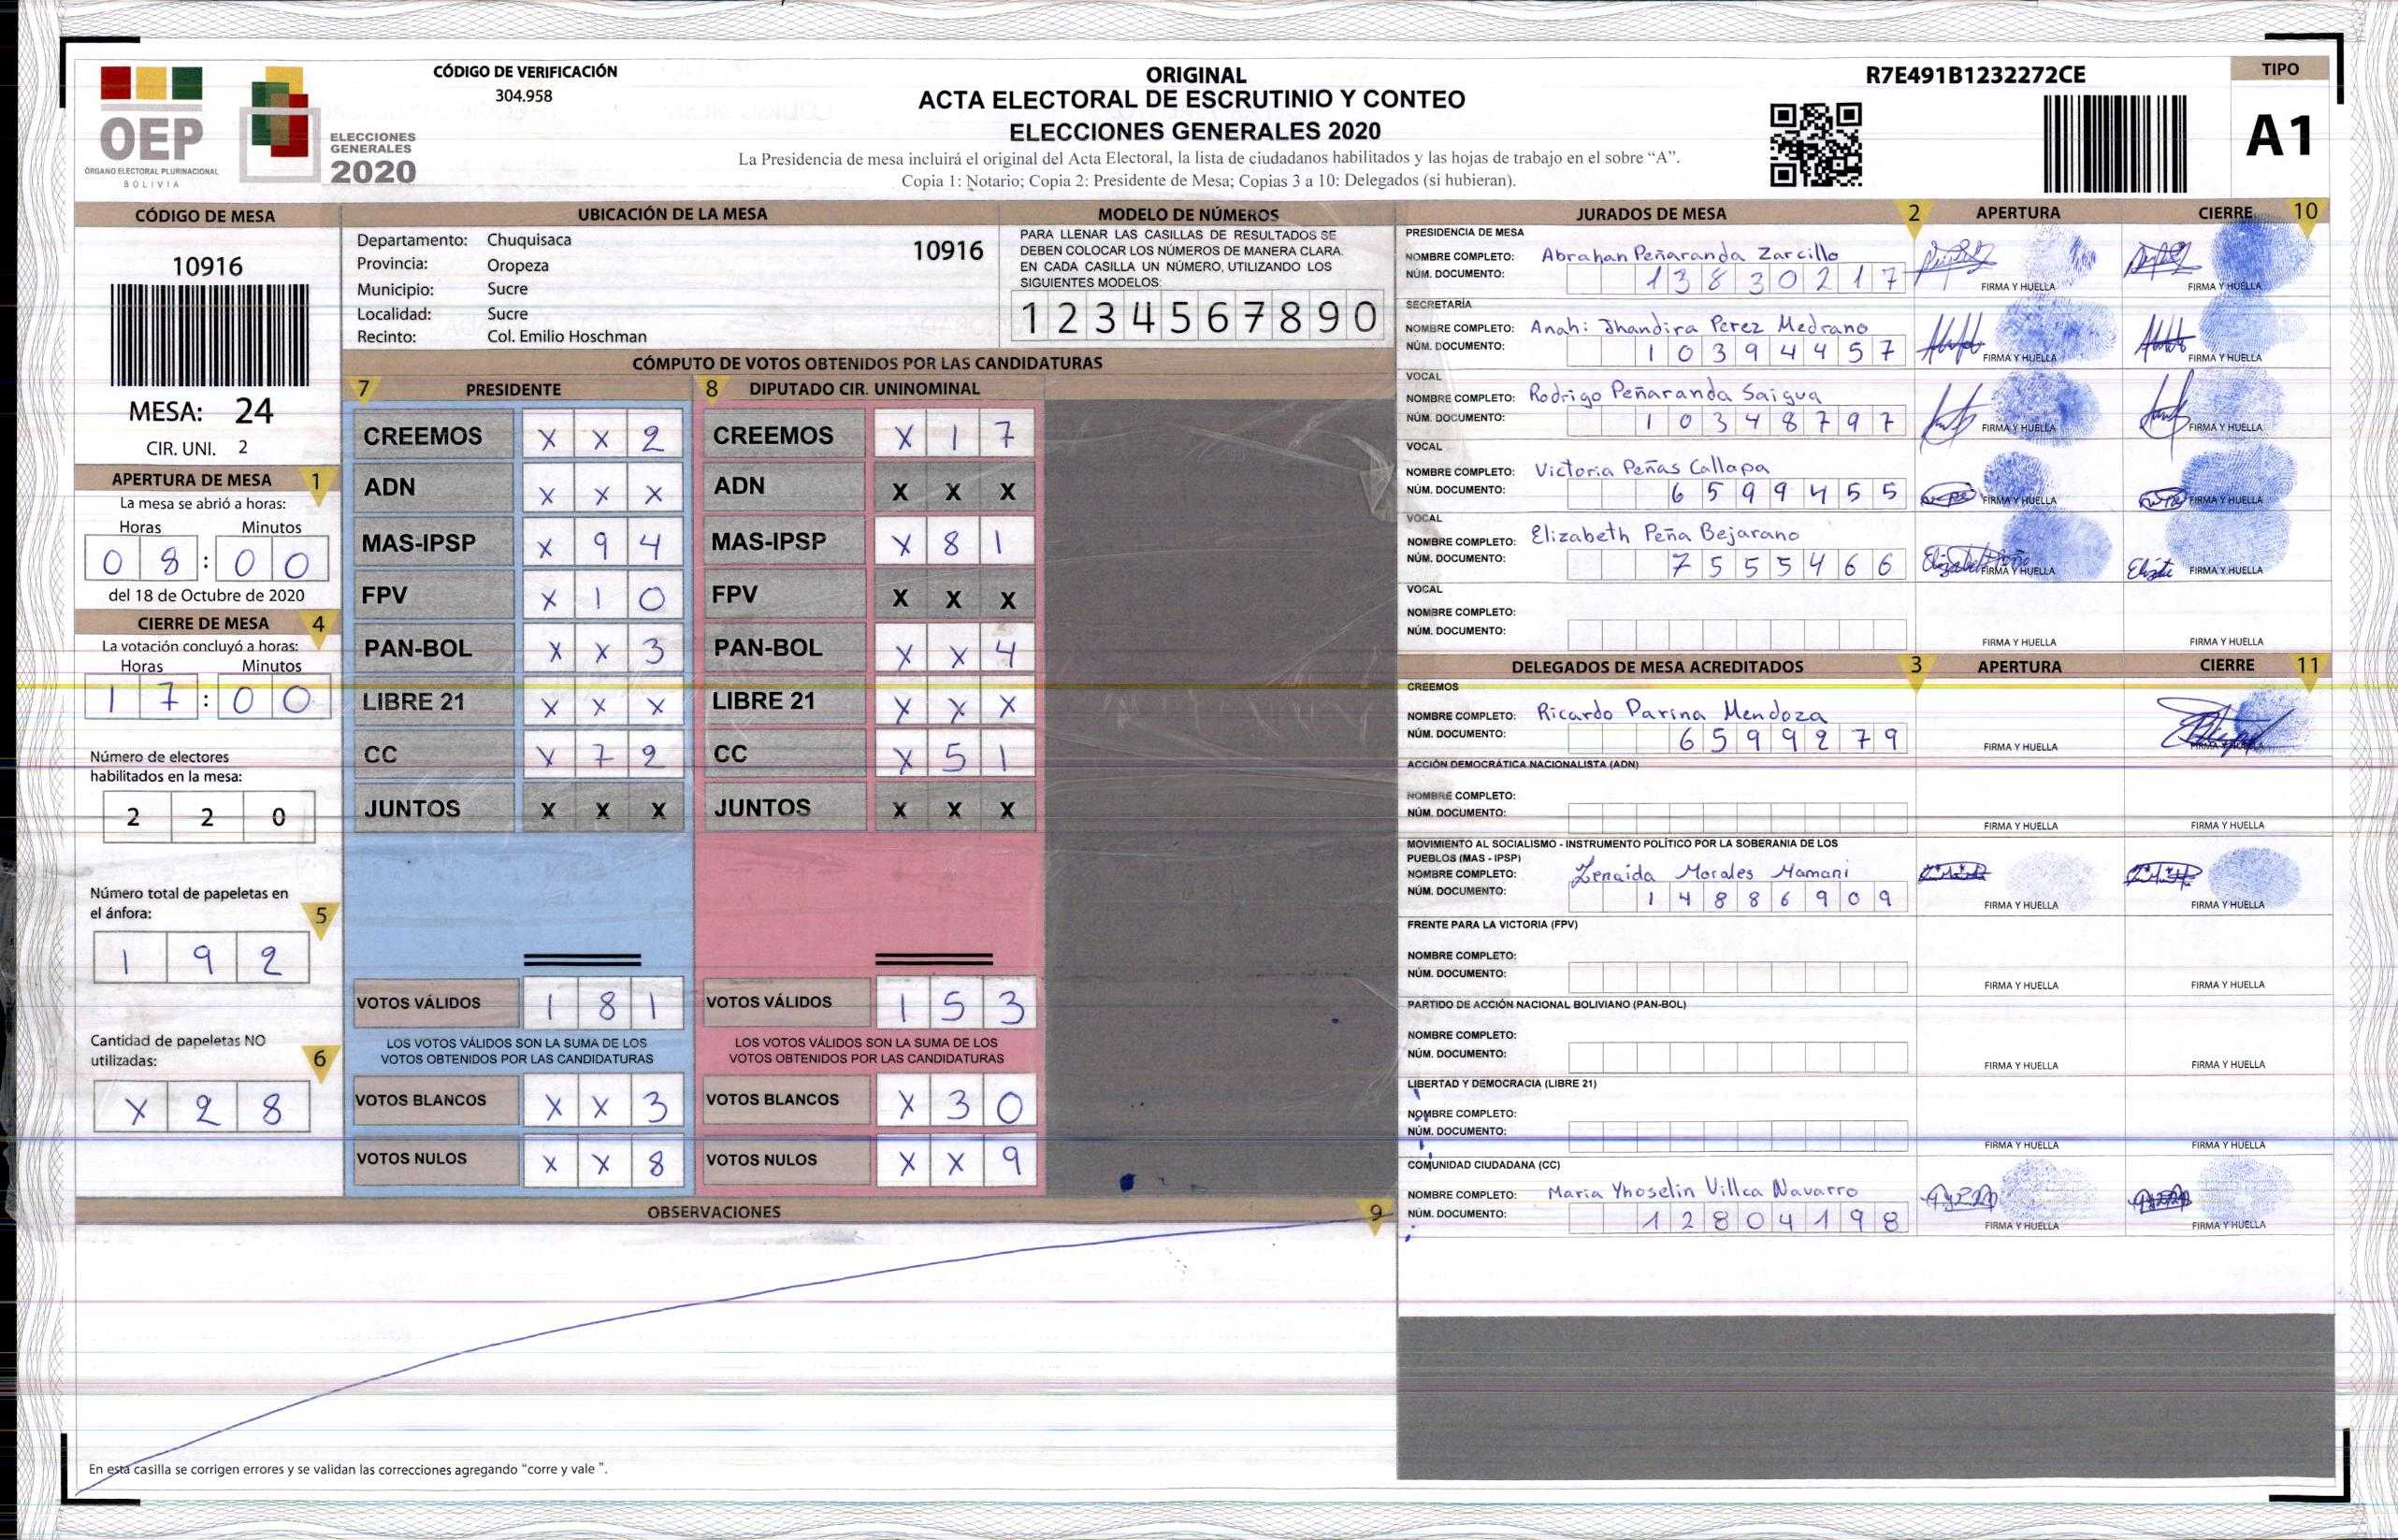 OEP
ÓRGANO ELECTORAL PLURINACIONAL
BOLIVIA
ELECCIONES
GENERALES
2020
CÓDIGO DE VERIFICACIÓN
304.958
ORIGINAL
ACTA ELECTORAL DE ESCRUTINIO Y CONTEO
ELECCIONES GENERALES 2020
La Presidencia de mesa incluirá el original del Acta Electoral, la lista de ciudadanos habilitados y las hojas de trabajo en el sobre “A”.
Copia 1: Notario; Copia 2: Presidente de Mesa; Copias 3 a 10: Delegados (si hubieran).
R7E491B1232272CE
TIPO
A1
CÓDIGO DE MESA
10916
MESA: 24
CIR. UNI. 2
APERTURA DE MESA 1
La mesa se abrió a horas:
Horas Minutos
0 8 : 0 0
del 18 de Octubre de 2020
CIERRE DE MESA 4
La votación concluyó a horas:
Horas Minutos
1 7 : 0 0
Número de electores
habilitados en la mesa:
2 2 0
Número total de papeletas en
el ánfora: 5
1 9 2
Cantidad de papeletas NO
utilizadas: 6
X 2 8
UBICACIÓN DE LA MESA
Departamento: Chuquisaca 10916
Provincia: Oropeza
Municipio: Sucre
Localidad: Sucre
Recinto: Col. Emilio Hoschman
MODELO DE NÚMEROS
PARA LLENAR LAS CASILLAS DE RESULTADOS SE
DEBEN COLOCAR LOS NÚMEROS DE MANERA CLARA.
EN CADA CASILLA UN NÚMERO, UTILIZANDO LOS
SIGUIENTES MODELOS:
1 2 3 4 5 6 7 8 9 0
CÓMPUTO DE VOTOS OBTENIDOS POR LAS CANDIDATURAS
7 PRESIDENTE
CREEMOS X X 2
ADN X X X
MAS-IPSP X 9 4
FPV X 1 0
PAN-BOL X X 3
LIBRE 21 X X X
CC X 7 2
JUNTOS X X X
VOTOS VÁLIDOS 1 8 1
LOS VOTOS VÁLIDOS SON LA SUMA DE LOS
VOTOS OBTENIDOS POR LAS CANDIDATURAS
VOTOS BLANCOS X X 3
VOTOS NULOS X X 8
8 DIPUTADO CIR. UNINOMINAL
CREEMOS X 1 7
ADN X X X
MAS-IPSP X 8 1
FPV X X X
PAN-BOL X X 4
LIBRE 21 X X X
CC X 5 1
JUNTOS X X X
VOTOS VÁLIDOS 1 5 3
LOS VOTOS VÁLIDOS SON LA SUMA DE LOS
VOTOS OBTENIDOS POR LAS CANDIDATURAS
VOTOS BLANCOS X 3 0
VOTOS NULOS X X 9
OBSERVACIONES 9
En esta casilla se corrigen errores y se validan las correcciones agregando “corre y vale ”.
JURADOS DE MESA 2 APERTURA CIERRE 10
PRESIDENCIA DE MESA
NOMBRE COMPLETO: Abrahan Peñaranda Zarcillo
NÚM. DOCUMENTO: 1 3 8 3 0 2 1 7
FIRMA Y HUELLA FIRMA Y HUELLA
SECRETARÍA
NOMBRE COMPLETO: Anahi Jhandira Perez Medrano
NÚM. DOCUMENTO: 1 0 3 9 4 4 5 7
FIRMA Y HUELLA FIRMA Y HUELLA
VOCAL
NOMBRE COMPLETO: Rodrigo Peñaranda Saigua
NÚM. DOCUMENTO: 1 0 3 4 8 7 9 7
FIRMA Y HUELLA FIRMA Y HUELLA
VOCAL
NOMBRE COMPLETO: Victoria Peñas Callapa
NÚM. DOCUMENTO: 6 5 9 9 4 5 5
FIRMA Y HUELLA FIRMA Y HUELLA
VOCAL
NOMBRE COMPLETO: Elizabeth Peña Bejarano
NÚM. DOCUMENTO: 7 5 5 5 4 6 6
FIRMA Y HUELLA FIRMA Y HUELLA
VOCAL
NOMBRE COMPLETO:
NÚM. DOCUMENTO:
FIRMA Y HUELLA FIRMA Y HUELLA
DELEGADOS DE MESA ACREDITADOS 3 APERTURA CIERRE 11
CREEMOS
NOMBRE COMPLETO: Ricardo Parina Mendoza
NÚM. DOCUMENTO: 6 5 9 9 2 7 9
FIRMA Y HUELLA FIRMA Y HUELLA
ACCIÓN DEMOCRÁTICA NACIONALISTA (ADN)
NOMBRE COMPLETO:
NÚM. DOCUMENTO:
FIRMA Y HUELLA FIRMA Y HUELLA
MOVIMIENTO AL SOCIALISMO - INSTRUMENTO POLÍTICO POR LA SOBERANIA DE LOS
PUEBLOS (MAS - IPSP)
NOMBRE COMPLETO: Zenaida Morales Mamani
NÚM. DOCUMENTO: 1 4 8 8 6 9 0 9
FIRMA Y HUELLA FIRMA Y HUELLA
FRENTE PARA LA VICTORIA (FPV)
NOMBRE COMPLETO:
NÚM. DOCUMENTO:
FIRMA Y HUELLA FIRMA Y HUELLA
PARTIDO DE ACCIÓN NACIONAL BOLIVIANO (PAN-BOL)
NOMBRE COMPLETO:
NÚM. DOCUMENTO:
FIRMA Y HUELLA FIRMA Y HUELLA
LIBERTAD Y DEMOCRACIA (LIBRE 21)
NOMBRE COMPLETO:
NÚM. DOCUMENTO:
FIRMA Y HUELLA FIRMA Y HUELLA
COMUNIDAD CIUDADANA (CC)
NOMBRE COMPLETO: Maria Yhoselin Villca Navarro
NÚM. DOCUMENTO: 1 2 8 0 4 1 9 8
FIRMA Y HUELLA FIRMA Y HUELLA